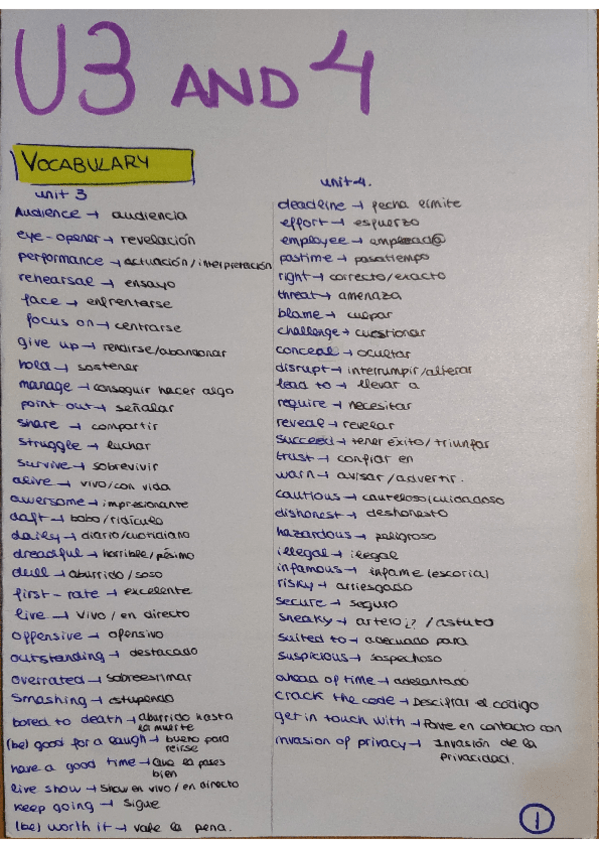 U3 AND 4
VOCABULARY
unit 3
Audience → audiencia
eye-opener → revelación
performance → actuación/interpretación
rehearsal → ensayo
face → enfrentarse
focus on → centrarse
give up → rendirse/abandonar
hold → sostener
manage → conseguir hacer algo
point out → señalar
share → compartir
struggle → luchar
survive → sobrevivir
alive → vivo/con vida
awersome → impresionante
daft → bobo/ridículo
daily → diario/cuotidiano
dreadful → horrible/pésimo
dull → aburrido/soso
first-rate → excelente
live → vivo/en directo
offensive → ofensivo
outstanding → destacado
overrated → sobreestimar
smashing → estupendo
bored to death → aburrido hasta
la muerte
(be) good for a laugh → bueno para
reirse
have a good time → que la pases
bien
live show → show en vivo/en directo
keep going → sigue
(be) worth it → vale la pena.
unit 4.
deadline → fecha límite
effort → esfuerzo
employee → emplead@
pastime → pasatiempo
right → correcto/exacto
threat → amenaza
blame → culpar
challenge → cuestionar
conceal → ocultar
disrupt → interrumpir/alterar
lead to → llevar a
require → necesitar
reveal → revelar
succeed → tener éxito/triunfar
trust → confiar en
warn → avisar/advertir.
cautious → cauteloso/cuidadoso
dishonest → deshonesto
hazardous → peligroso
illegal → ilegal
infamous → infame (escoria)
risky → arriesgado
secure → seguro
sneaky → astero¿?/astuto
suited to → adecuado para
suspicious → sospechoso
ahead of time → adelantado
crack the code → Descifrar el código
get in touch with → Ponte en contacto con
invasion of privacy → Invasión de la
privacidad.
1